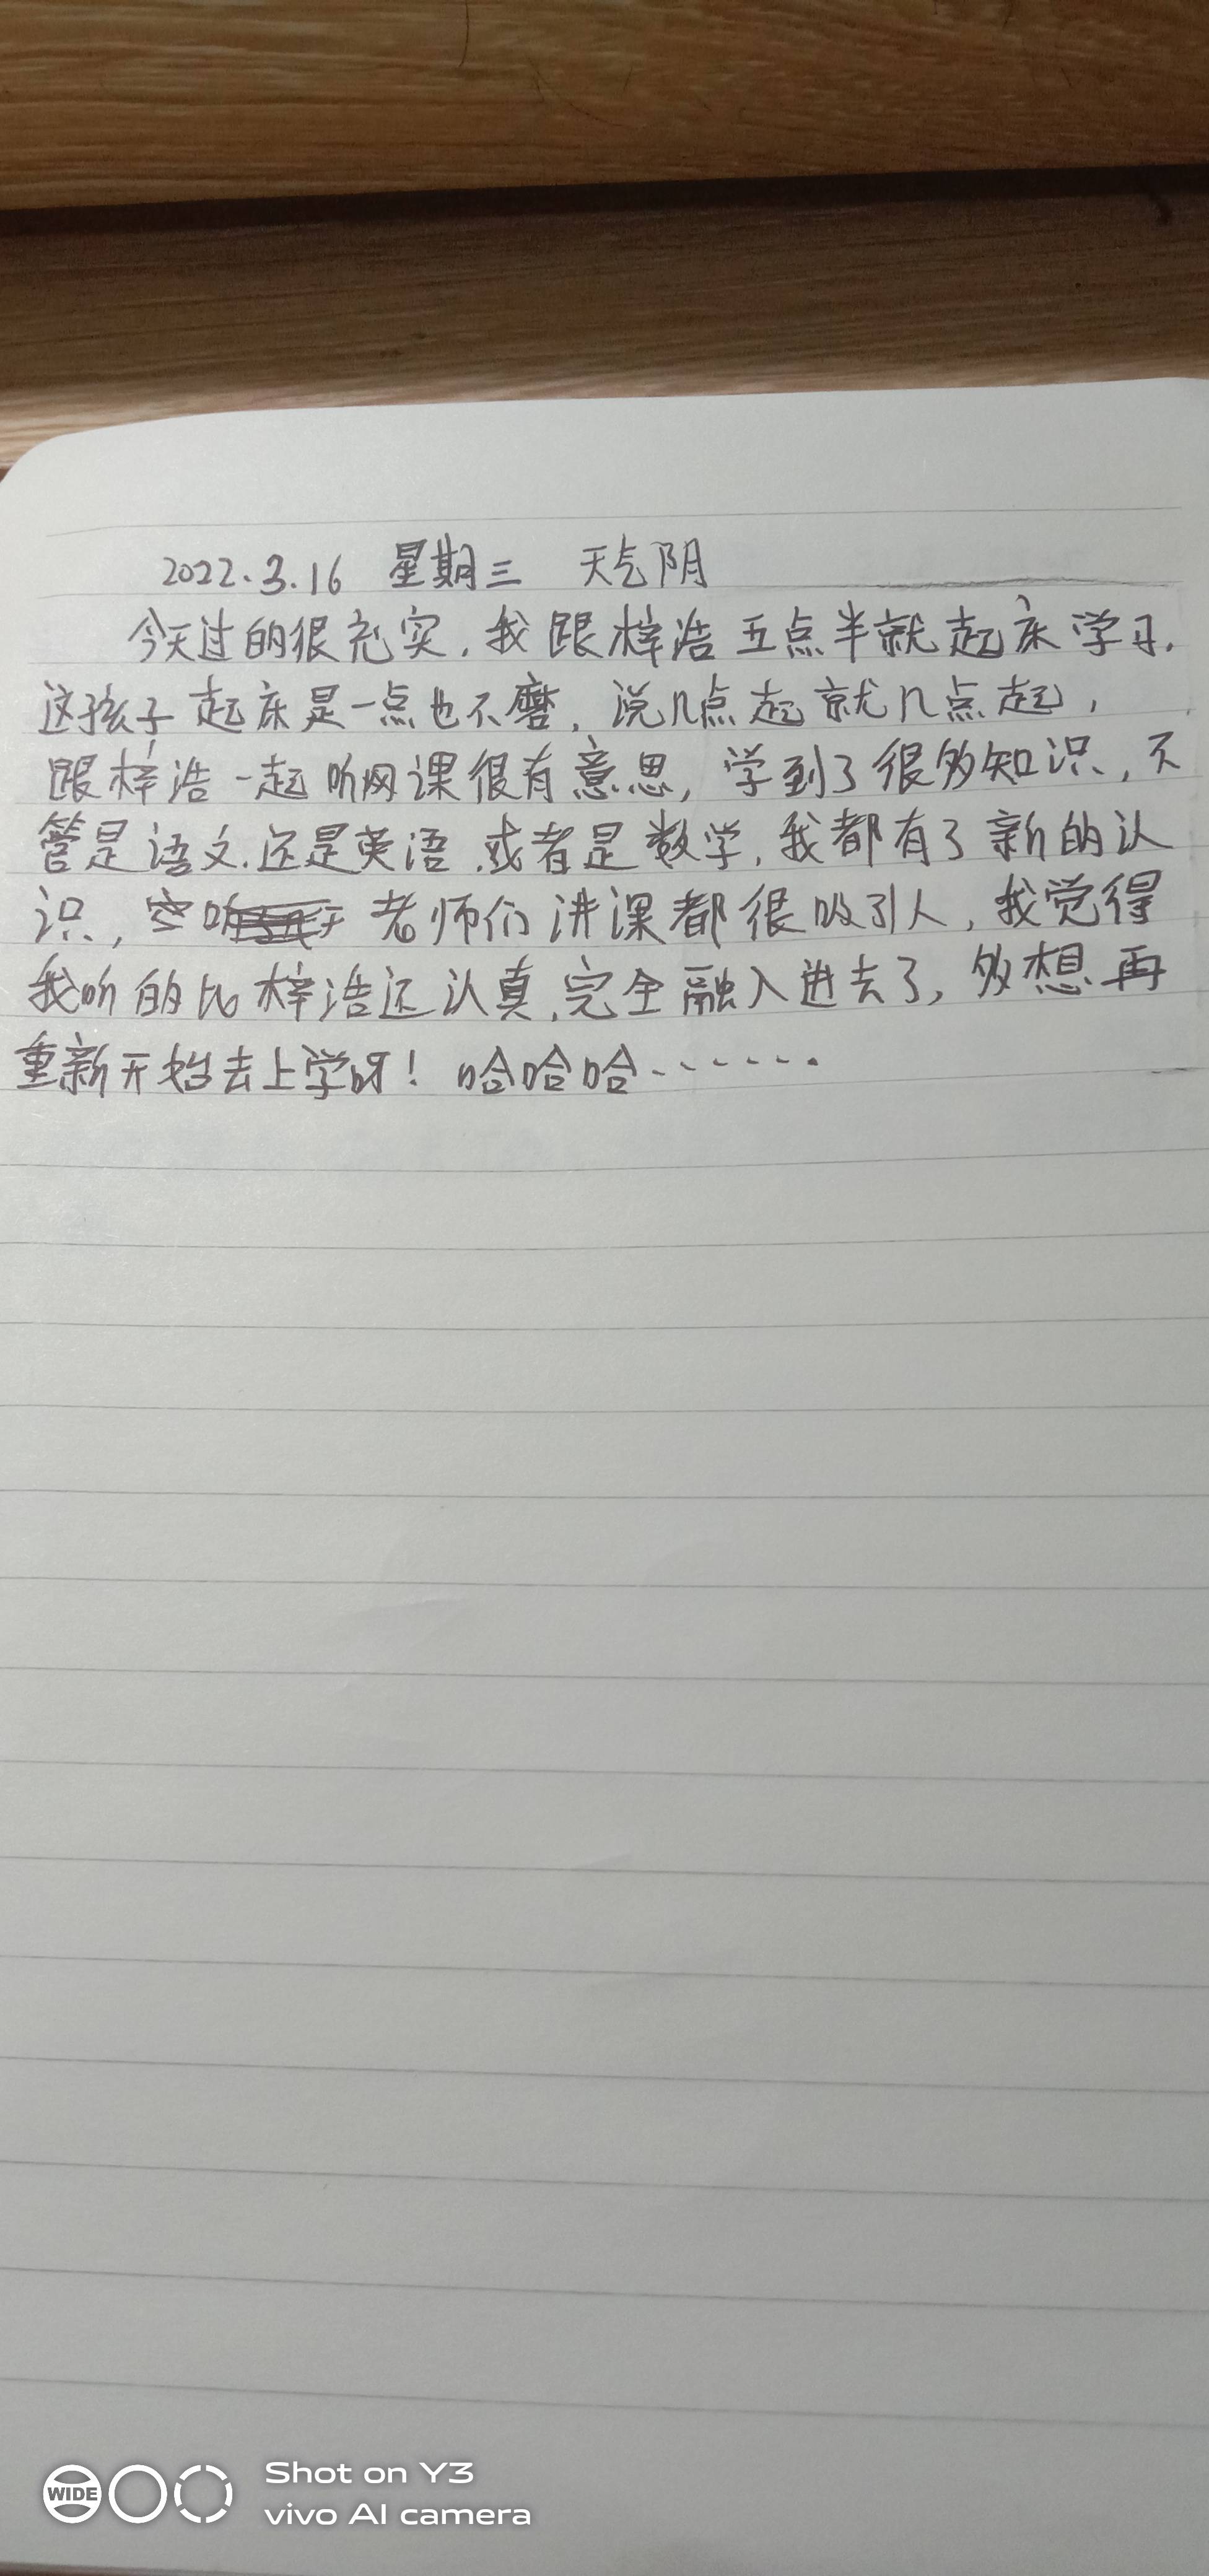 2022.3.16 星期三 天气阴
今天过的很充实，我跟梓浩五点半就起床学习，
这孩子起床是一点也不磨，说几点起就几点起，
跟梓浩一起听网课很有意思，学到了很多知识，不
管是语文.还是英语.或者是数学，我都有了新的认
识，老师们讲课都很吸引人，我觉得
我听的比梓浩还认真，完全融入进去了，多想再
重新开始去上学呀！哈哈哈……
WIDE
Shot on Y3
vivo AI camera